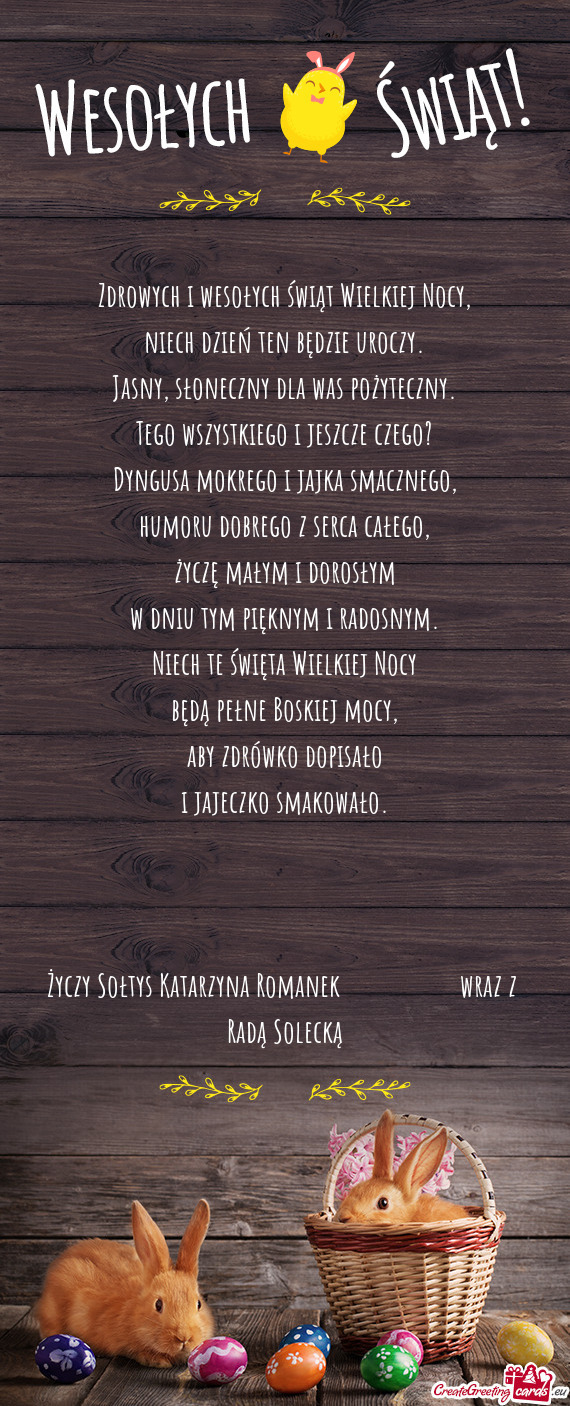 Wesołych Świąt!
Zdrowych i wesołych świąt Wielkiej Nocy,
niech dzień ten będzie uroczy.
Jasny, słoneczny dla was pożyteczny.
Tego wszystkiego i jeszcze czego?
Dyngusa mokrego i jajka smacznego,
humoru dobrego z serca całego,
życzę małym i dorosłym
w dniu tym pięknym i radosnym.
Niech te święta Wielkiej Nocy
będą pełne Boskiej mocy,
aby zdrówko dopisało
i jajeczko smakowało.
Życzy Sołtys Katarzyna Romanek wraz z
Radą Solecką
CreateGreetingcards.eu